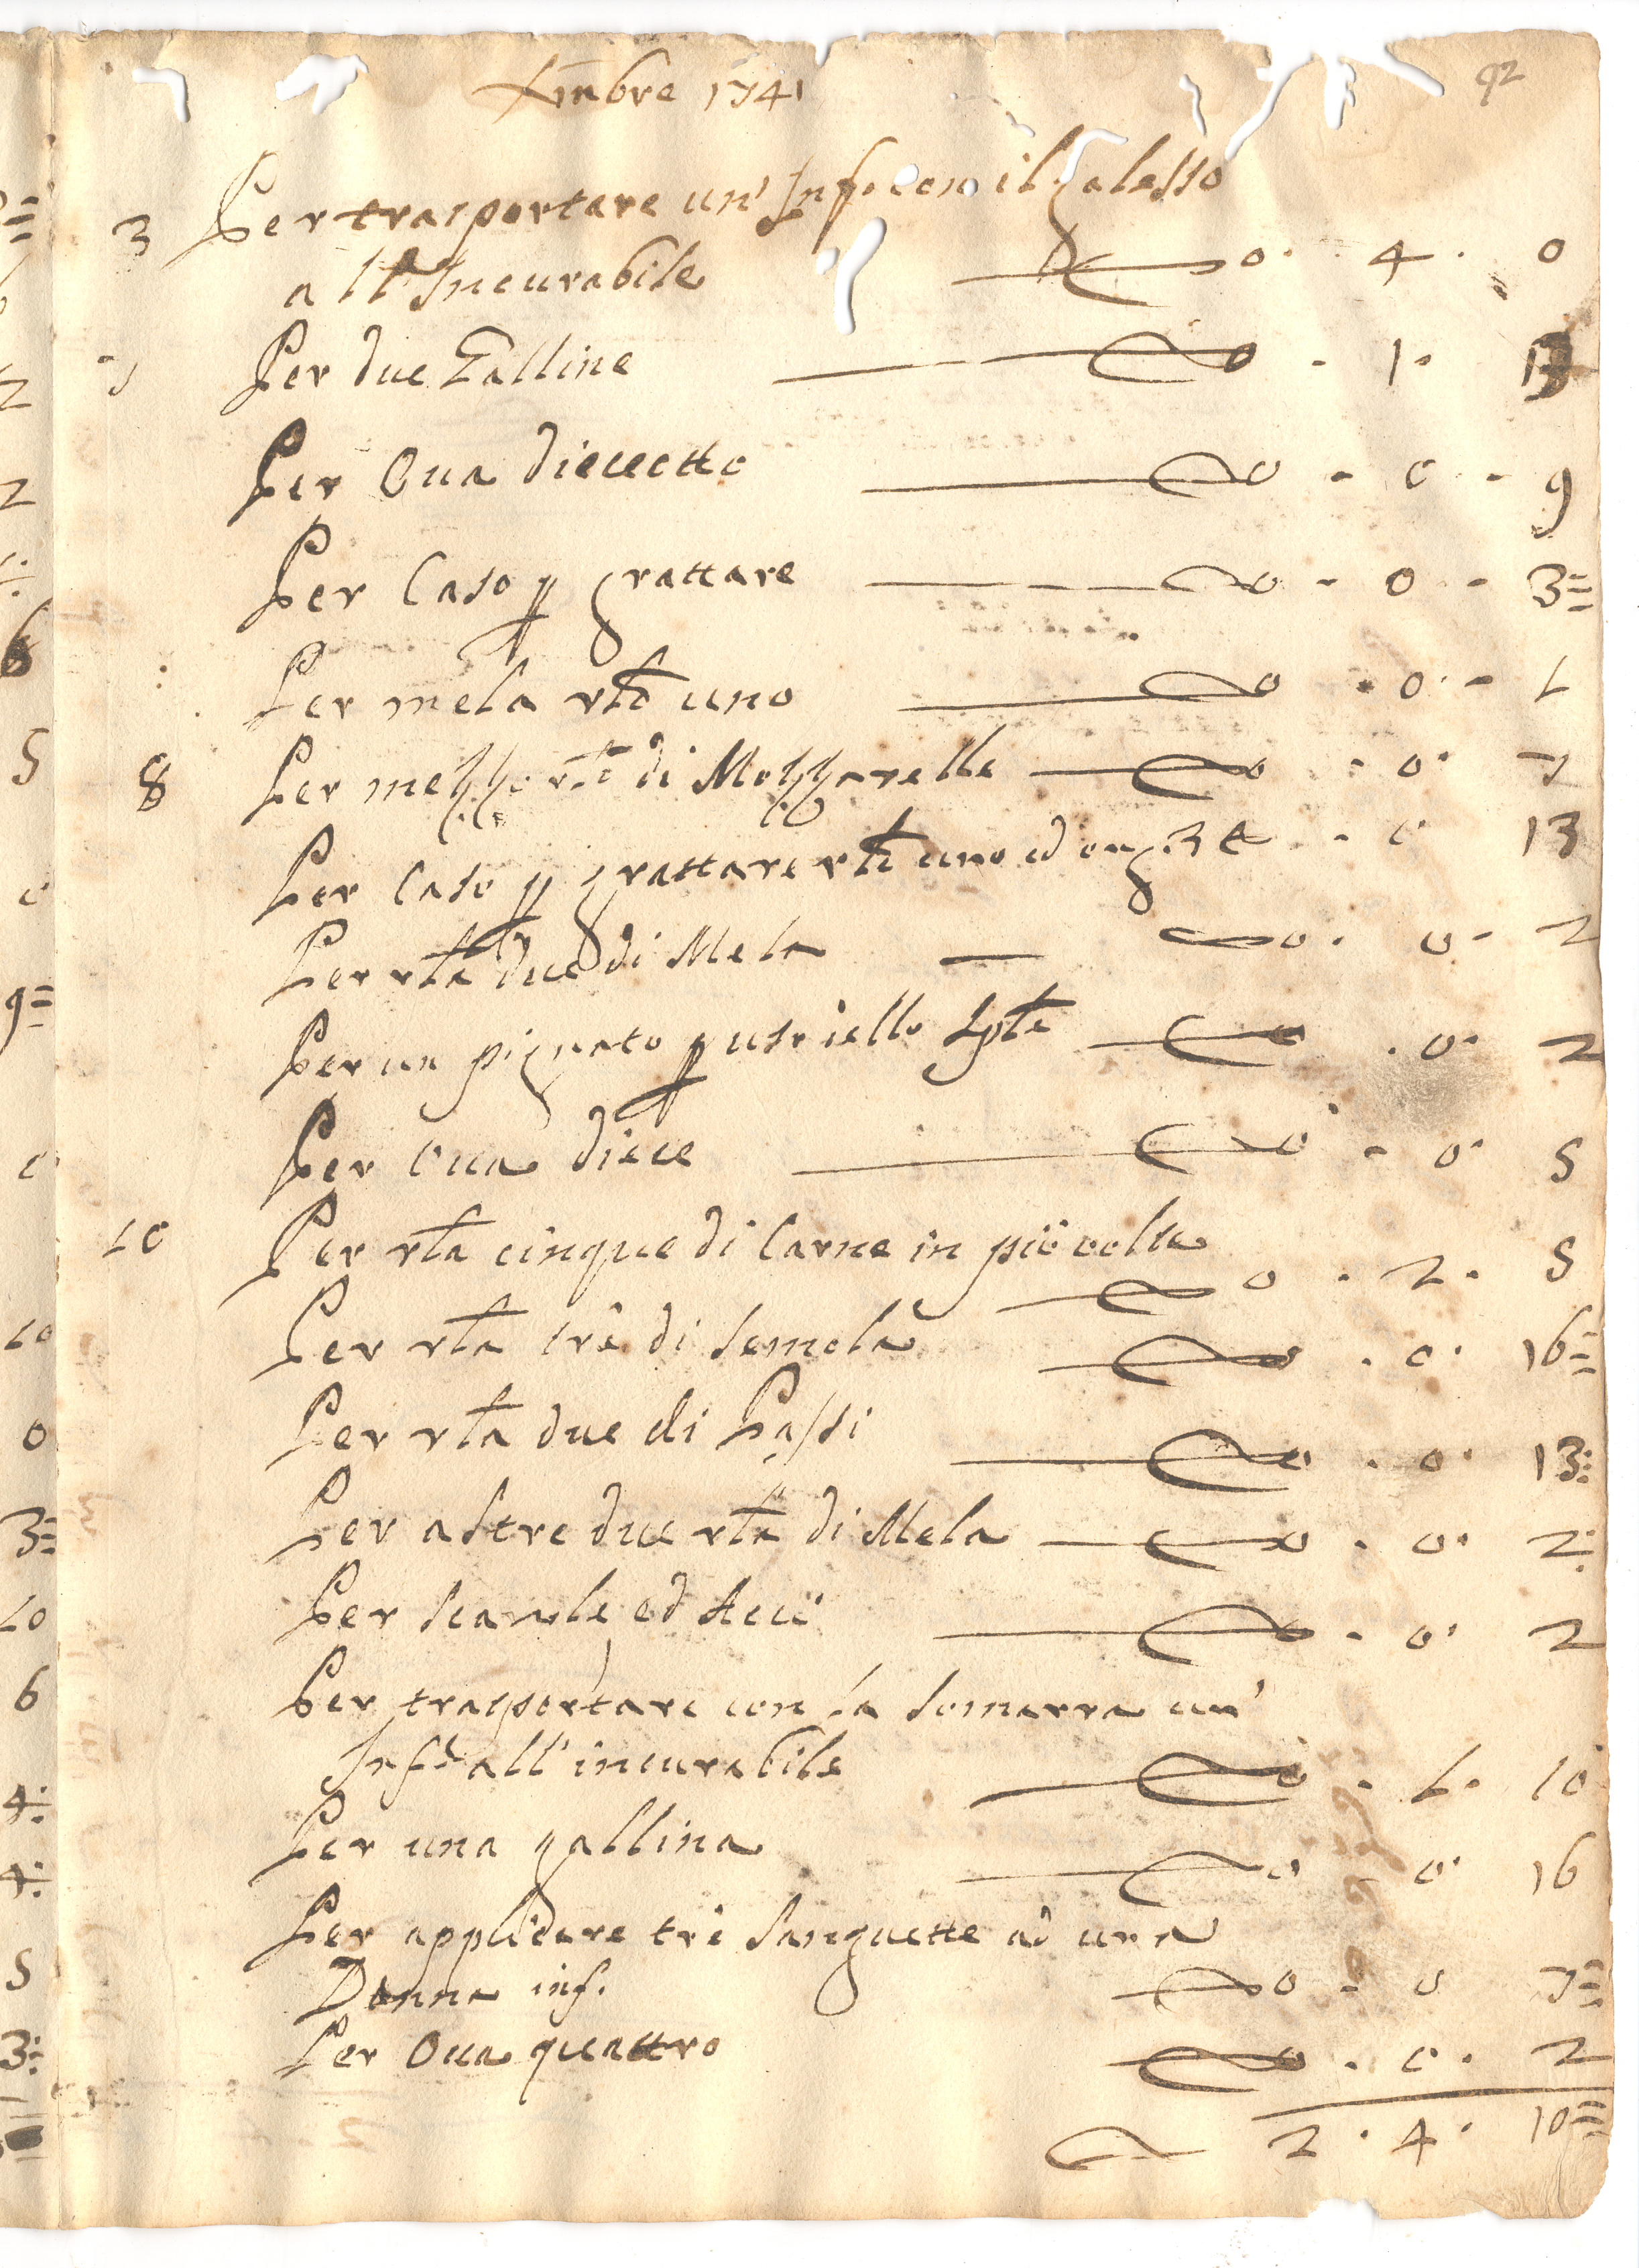 Xmbre 1741
92
3 Per trasportare un' Inf.o con il Galesso
all' Incurabile 0. 4. 0
7 Per due Galline 0 - 1. 13
Per Oua dieceotto 0 - 0 - 9
Per Caso p grattare 0 - 0 - 3=
Per mela rlo uno 0 - 0 - 1
8 Per mezzo rlo di Mozzarelle 0 - 0. 7
Per Caso p grattare rlo uno ed onz. 3 - 0 13
Per rla due di Mela 0. 0 - 2
Per un pignato p usoiello Sple 0 . 0. 2
Per Oua diece 0 - 0. 5
10 Per rla cinque di Carne in più volte
0 . 2 . 5
Per rla trè di Semola 0 . 0. 16=
Per rla due di Passi 0 . 0. 13:
Per altre due rla di Mela 0 . 0. 2:
Per Scarole ed Acci 0 - 0. 2
Per trasportare con la Somarra un'
Inf.o all' incurabile 0 . 1. 10
Per una gallina 0 - 0. 16
Per applicare trè Sanguette ad una
Donna inf. 0 - 0 7=
Per Oua quattro 0 . 0 . 2
2 . 4 . 10=